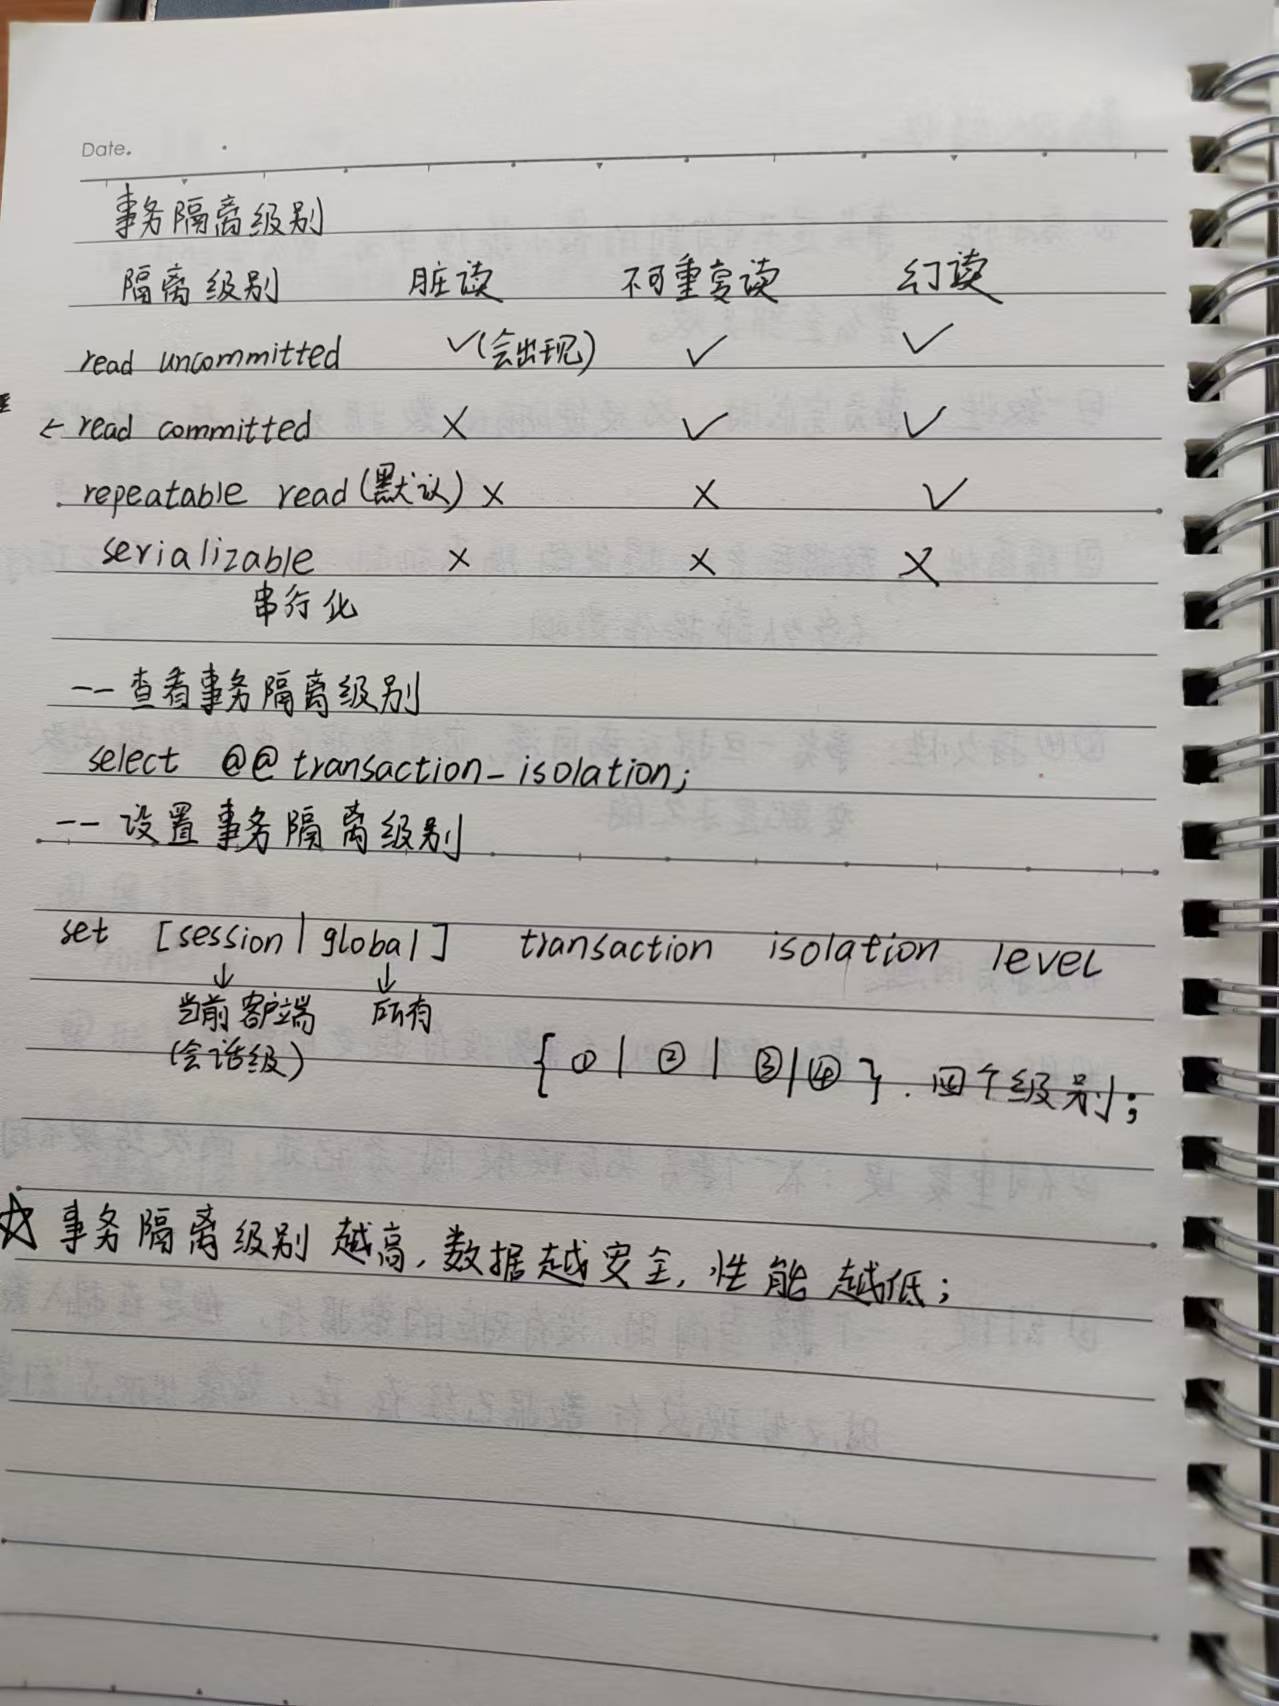 Date.
事务隔离级别
隔离级别 脏读 不可重复读 幻读
read uncommitted ✓(会出现) ✓ ✓
← read committed × ✓ ✓
repeatable read(默认) × × ✓
serializable × × ×
串行化
-- 查看事务隔离级别
select @@transaction_isolation;
-- 设置事务隔离级别
set [session|global] transaction isolation level
↓ ↓
当前客户端 所有
(会话级)
{①|②|③|④}. 四个级别;
☆ 事务隔离级别越高,数据越安全,性能越低;